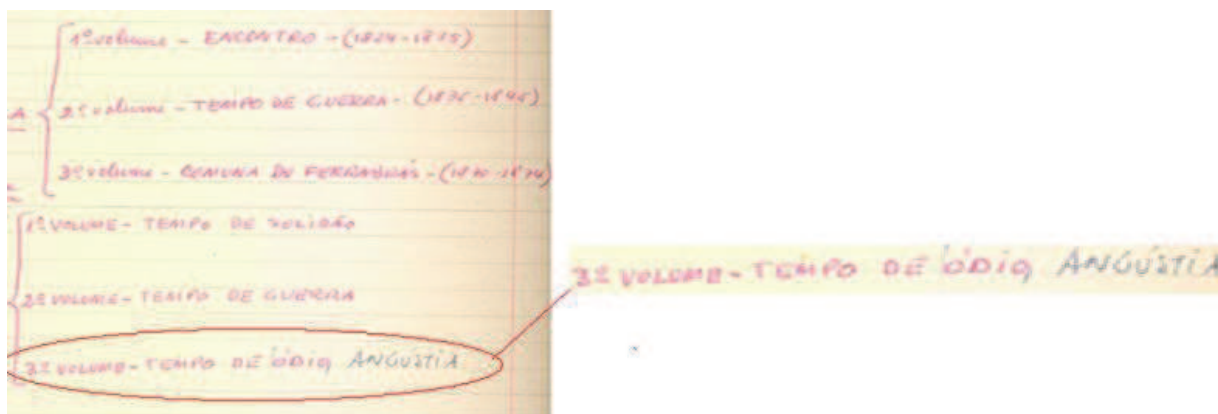 A
1º volume - ENCONTRO - (1824-1835)
2º volume - TEMPO DE GUERRA - (1835-1845)
3º volume - COMUNA DE FERRABRÁS - (1870-1874)
1º VOLUME - TEMPO DE SOLIDÃO
2º VOLUME - TEMPO DE GUERRA
3º VOLUME - TEMPO DE ÓDIO, ANGÚSTIA
3º VOLUME - TEMPO DE ÓDIO, ANGÚSTIA